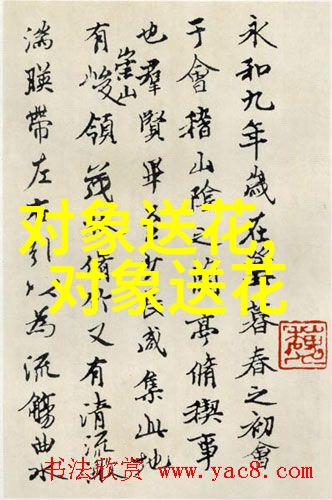 永和九年歲在暮春之初會
于會稽山陰之蘭亭脩稧事
也羣賢畢少長咸集此地
有崇山峻領茂脩竹又有清流激
湍暎帶左右引以為流觴曲水
对象送花,
对象送花
书法欣赏 www.yac8.com